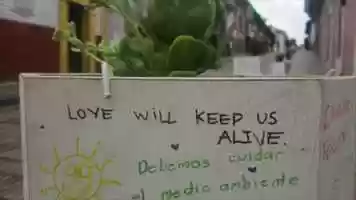 LOVE WILL KEEP US
ALIVE.
Debemos cuidar
el medio ambiente